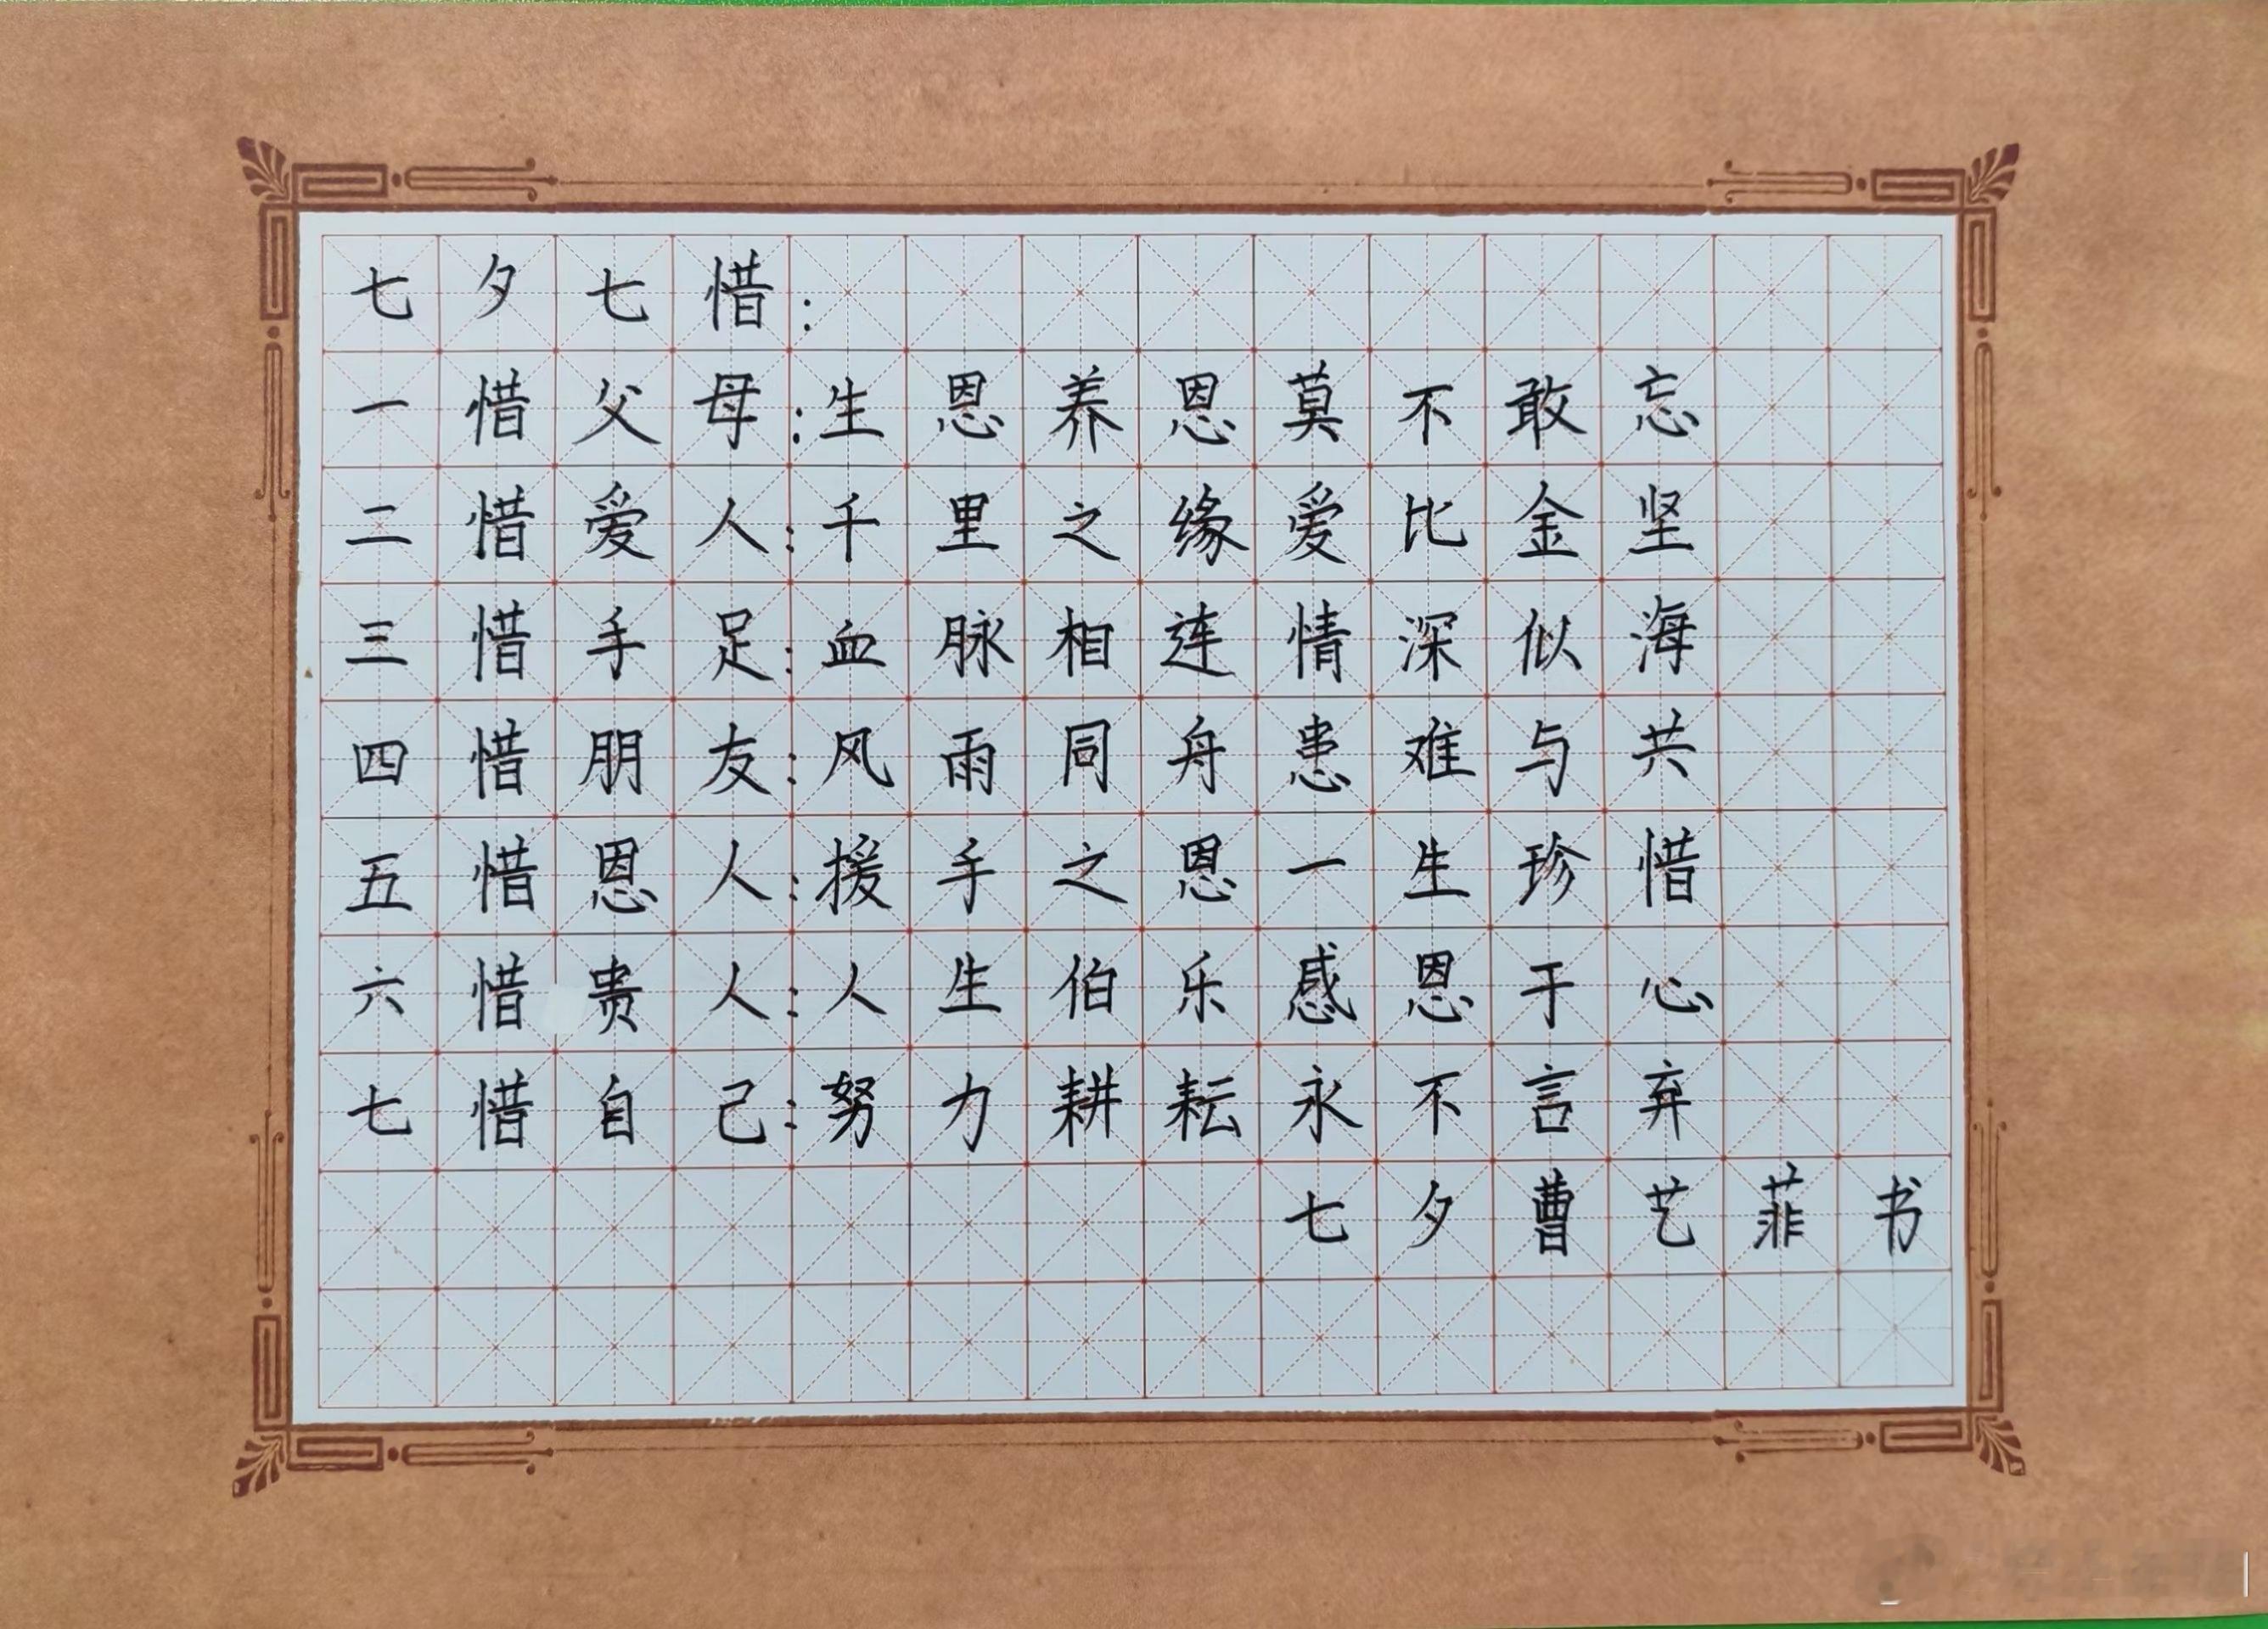 七夕七惜：
一惜父母：生恩养恩莫不敢忘
二惜爱人：千里之缘爱比金坚
三惜手足：血脉相连情深似海
四惜朋友：风雨同舟患难与共
五惜恩人：援手之恩一生珍惜
六惜贵人：人生伯乐感恩于心
七惜自己：努力耕耘永不言弃
七夕曹艺菲书